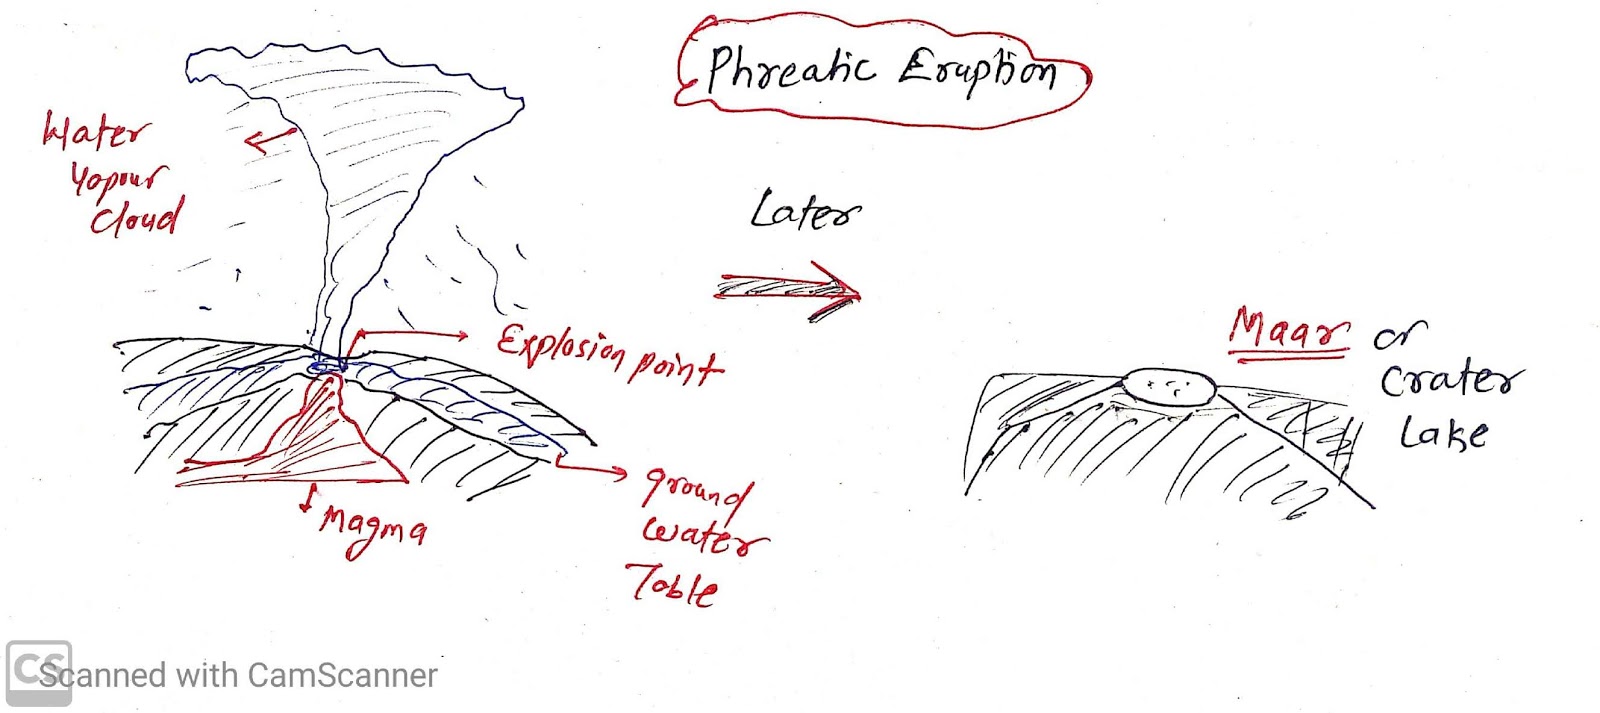 Phreatic Eruption
Water
Vapour
Cloud
Later
Explosion point
Magma
ground
water
Table
Maar or
Crater
Lake
CS
Scanned with CamScanner